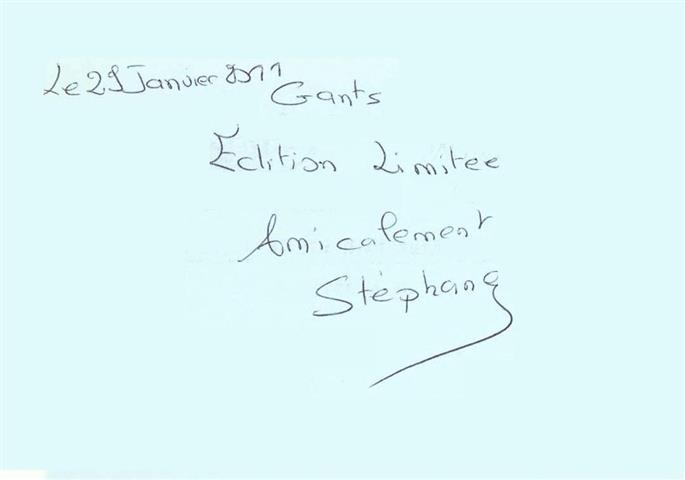 Le 29 Janvier 2011
Gants
Edition Limitee
Amicalement
Stéphane